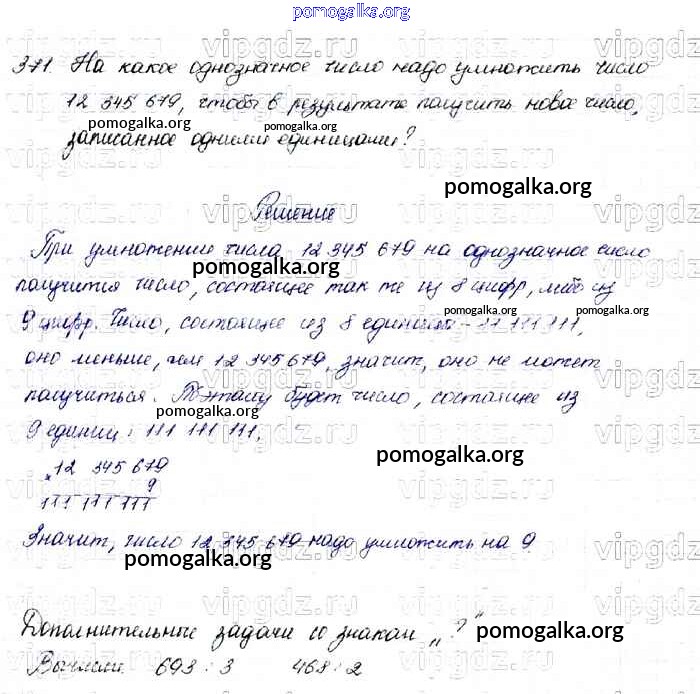 pomogalka.org
371. На какое однозначное число надо умножить число
12 345 679, чтобы в результате получить новое число,
pomogalka.org pomogalka.org
записанное одними единицами?
pomogalka.org
Решение
При умножении числа 12 345 679 на однозначное число
pomogalka.org
получится число, состоящее так же из 8 цифр, либо из
pomogalka.org pomogalka.org
9 цифр. Число, состоящее из 8 единиц - 11 111 111,
оно меньше, чем 12 345 679, значит, оно не может
получиться. Поэтому будет число, состоящее из
pomogalka.org
9 единиц: 111 111 111.
pomogalka.org
× 12 345 679
9
111 111 111
Значит, число 12 345 679 надо умножить на 9
pomogalka.org
Дополнительные задачи со знаком „?"
pomogalka.org
Вычисли. 693 : 3 468 : 2
vipgdz.ru